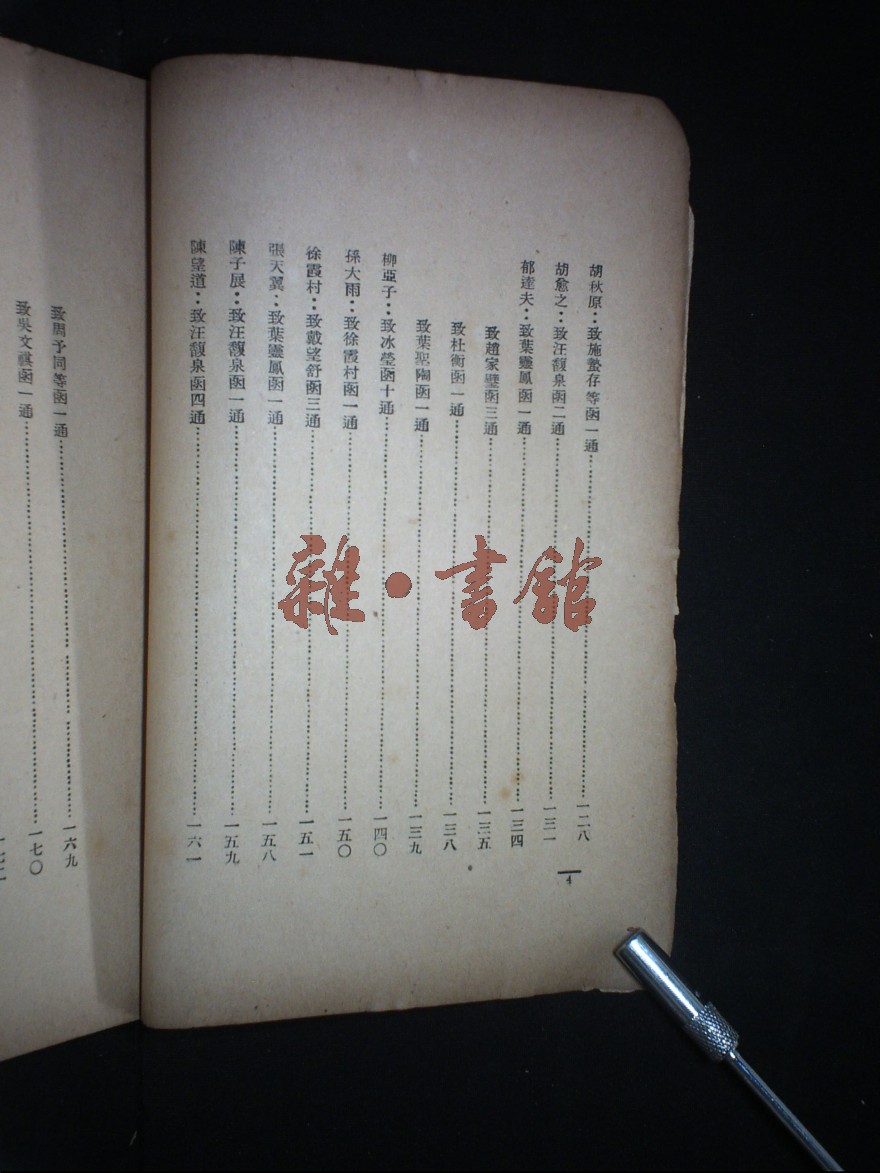 胡秋原：致施蟄存等函一通……一二八
胡愈之：致汪馥泉函二通……一三一
郁達夫：致葉靈鳳函一通……一三四
致趙家璧函三通……一三五
致杜衡函一通……一三八
致葉聖陶函一通……一三九
柳亞子：致冰瑩函十通……一四〇
孫大雨：致徐霞村函一通……一五〇
徐霞村：致戴望舒函三通……一五一
張天翼：致葉靈鳳函一通……一五八
陳子展：致汪馥泉函一通……一五九
陳望道：致汪馥泉函四通……一六一
4
致周予同等函一通……一六九
致吳文祺函一通……一七〇
雜·書館